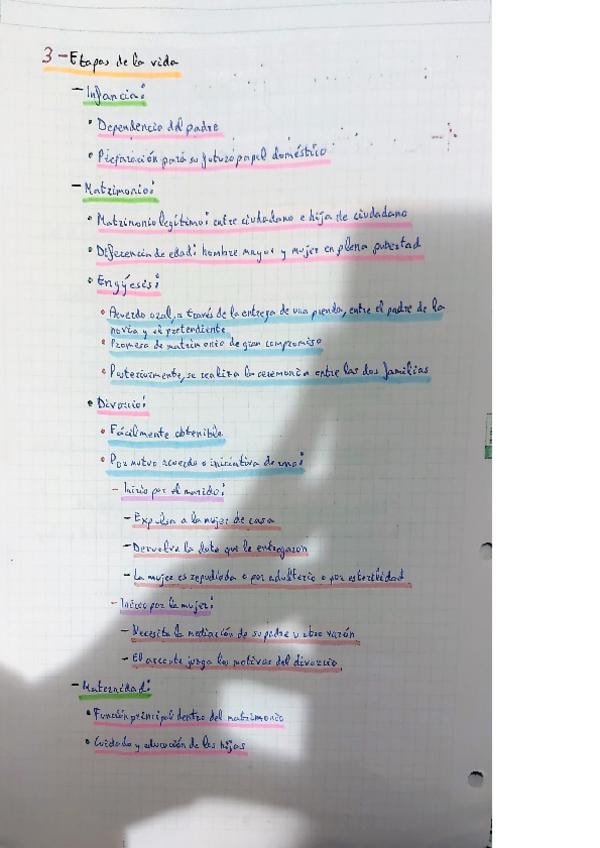 3 - Etapas de la vida
- Infancia:
• Dependencia del padre
• Preparación para su futuro papel doméstico
- Matrimonio:
• Matrimonio legítimo: entre ciudadano e hija de ciudadano
• Diferencia de edad: hombre mayor y mujer en plena pubertad
• Engýesis:
• Acuerdo oral, a través de la entrega de una prenda, entre el padre de la
novia y el pretendiente
• Promesa de matrimonio de gran compromiso
• Posteriormente, se realiza la ceremonia entre las dos familias
• Divorcio:
• Fácilmente obtenible
• Por mutuo acuerdo o iniciativa de uno:
- Inicio por el marido:
- Expulsa a la mujer de casa
- Devuelve la dote que le entregaron
- La mujer es repudiada o por adulterio o por esterilidad
- Inicio por la mujer:
- Necesita la mediación de su padre u otro varón
- El arconte juzga los motivos del divorcio
- Maternidad:
• Función principal dentro del matrimonio
• Cuidado y educación de las hijas